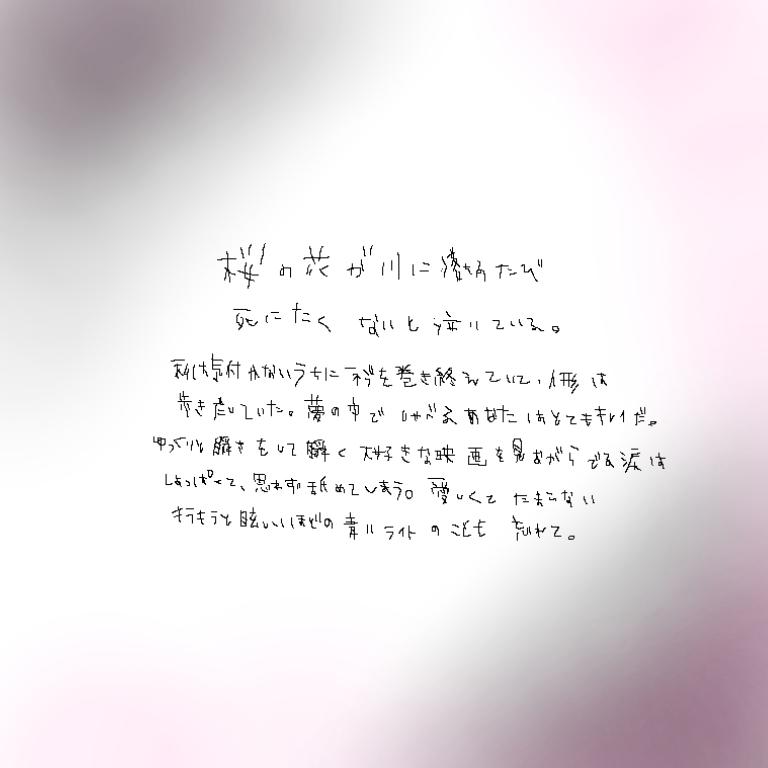 桜の花が川に落ちるたび
死にたくないと泣いている。
私は気付かないうちに ネジを巻き終えていて、人形は
歩き出していた。夢の中で しゃべるあなたはとてもキレイだ。
ゆっくりと瞬きをして瞬く 大好きな映画を見ながらでる涙は
しょっぱくて、思わず舐めてしまう。愛しくてたまらない
キラキラと眩しいほどの青いライトのことも 忘れて。